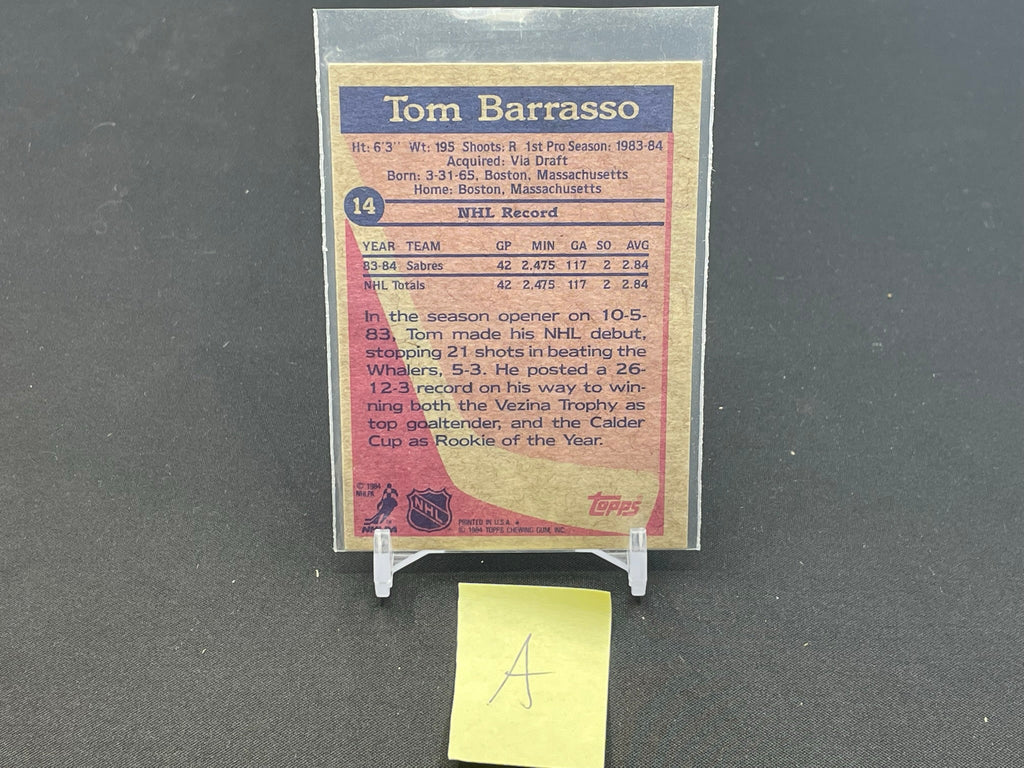 Tom Barrasso
Ht: 6'3" Wt: 195 Shoots: R 1st Pro Season: 1983-84
Acquired: Via Draft
Born: 3-31-65, Boston, Massachusetts
Home: Boston, Massachusetts
14
NHL Record
YEAR TEAM GP MIN GA SO AVG
83-84 Sabres 42 2,475 117 2 2.84
NHL Totals 42 2,475 117 2 2.84
In the season opener on 10-5-
83, Tom made his NHL debut,
stopping 21 shots in beating the
Whalers, 5-3. He posted a 26-
12-3 record on his way to win-
ning both the Vezina Trophy as
top goaltender, and the Calder
Cup as Rookie of the Year.
© 1984
NHLPA
NHLPA
NHL
topps
PRINTED IN U.S.A.
© 1984 TOPPS CHEWING GUM, INC.
A